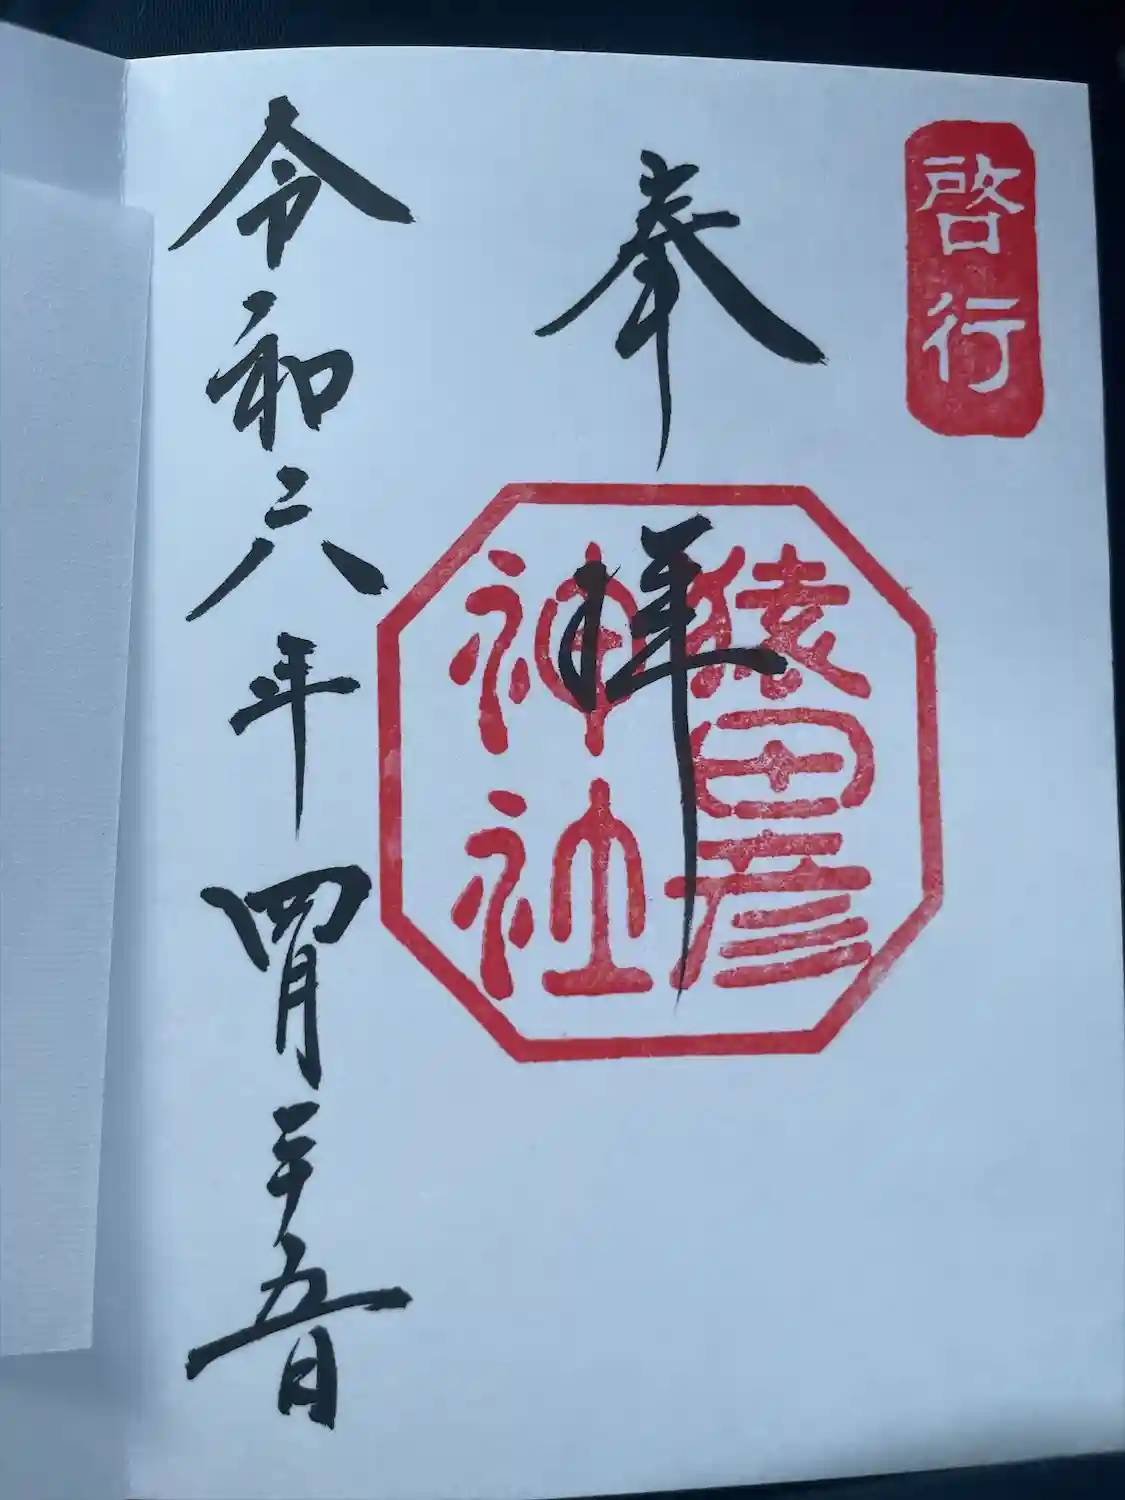 啓行
奉拝
猿田彦
神社
令和六年四月二十五日